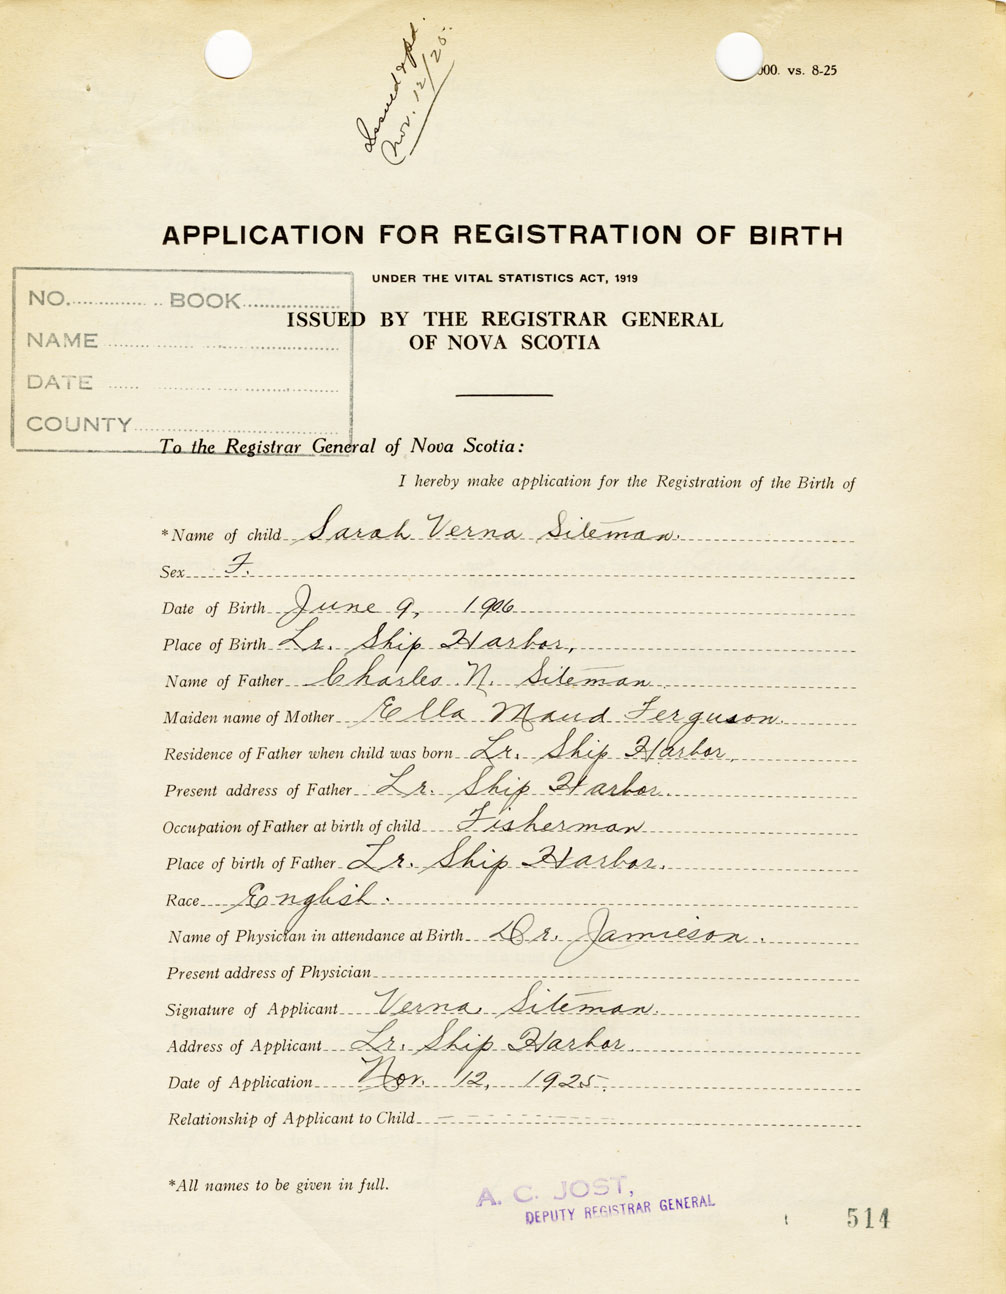 Issued & pd.
Nov. 12/25.
000. vs. 8-25
APPLICATION FOR REGISTRATION OF BIRTH
UNDER THE VITAL STATISTICS ACT, 1919
ISSUED BY THE REGISTRAR GENERAL
OF NOVA SCOTIA
NO. BOOK
NAME
DATE
COUNTY
To the Registrar General of Nova Scotia:
I hereby make application for the Registration of the Birth of
*Name of child Sarah Verna Siteman.
Sex F.
Date of Birth June 9, 1906
Place of Birth Lr. Ship Harbor,
Name of Father Charles N. Siteman
Maiden name of Mother Ella Maud Ferguson.
Residence of Father when child was born Lr. Ship Harbor,
Present address of Father Lr. Ship Harbor.
Occupation of Father at birth of child Fisherman
Place of birth of Father Lr. Ship Harbor.
Race English.
Name of Physician in attendance at Birth Dr. Jamieson.
Present address of Physician
Signature of Applicant Verna Siteman.
Address of Applicant Lr. Ship Harbor.
Date of Application Nov. 12, 1925.
Relationship of Applicant to Child
*All names to be given in full.
A. C. JOST,
DEPUTY REGISTRAR GENERAL
514